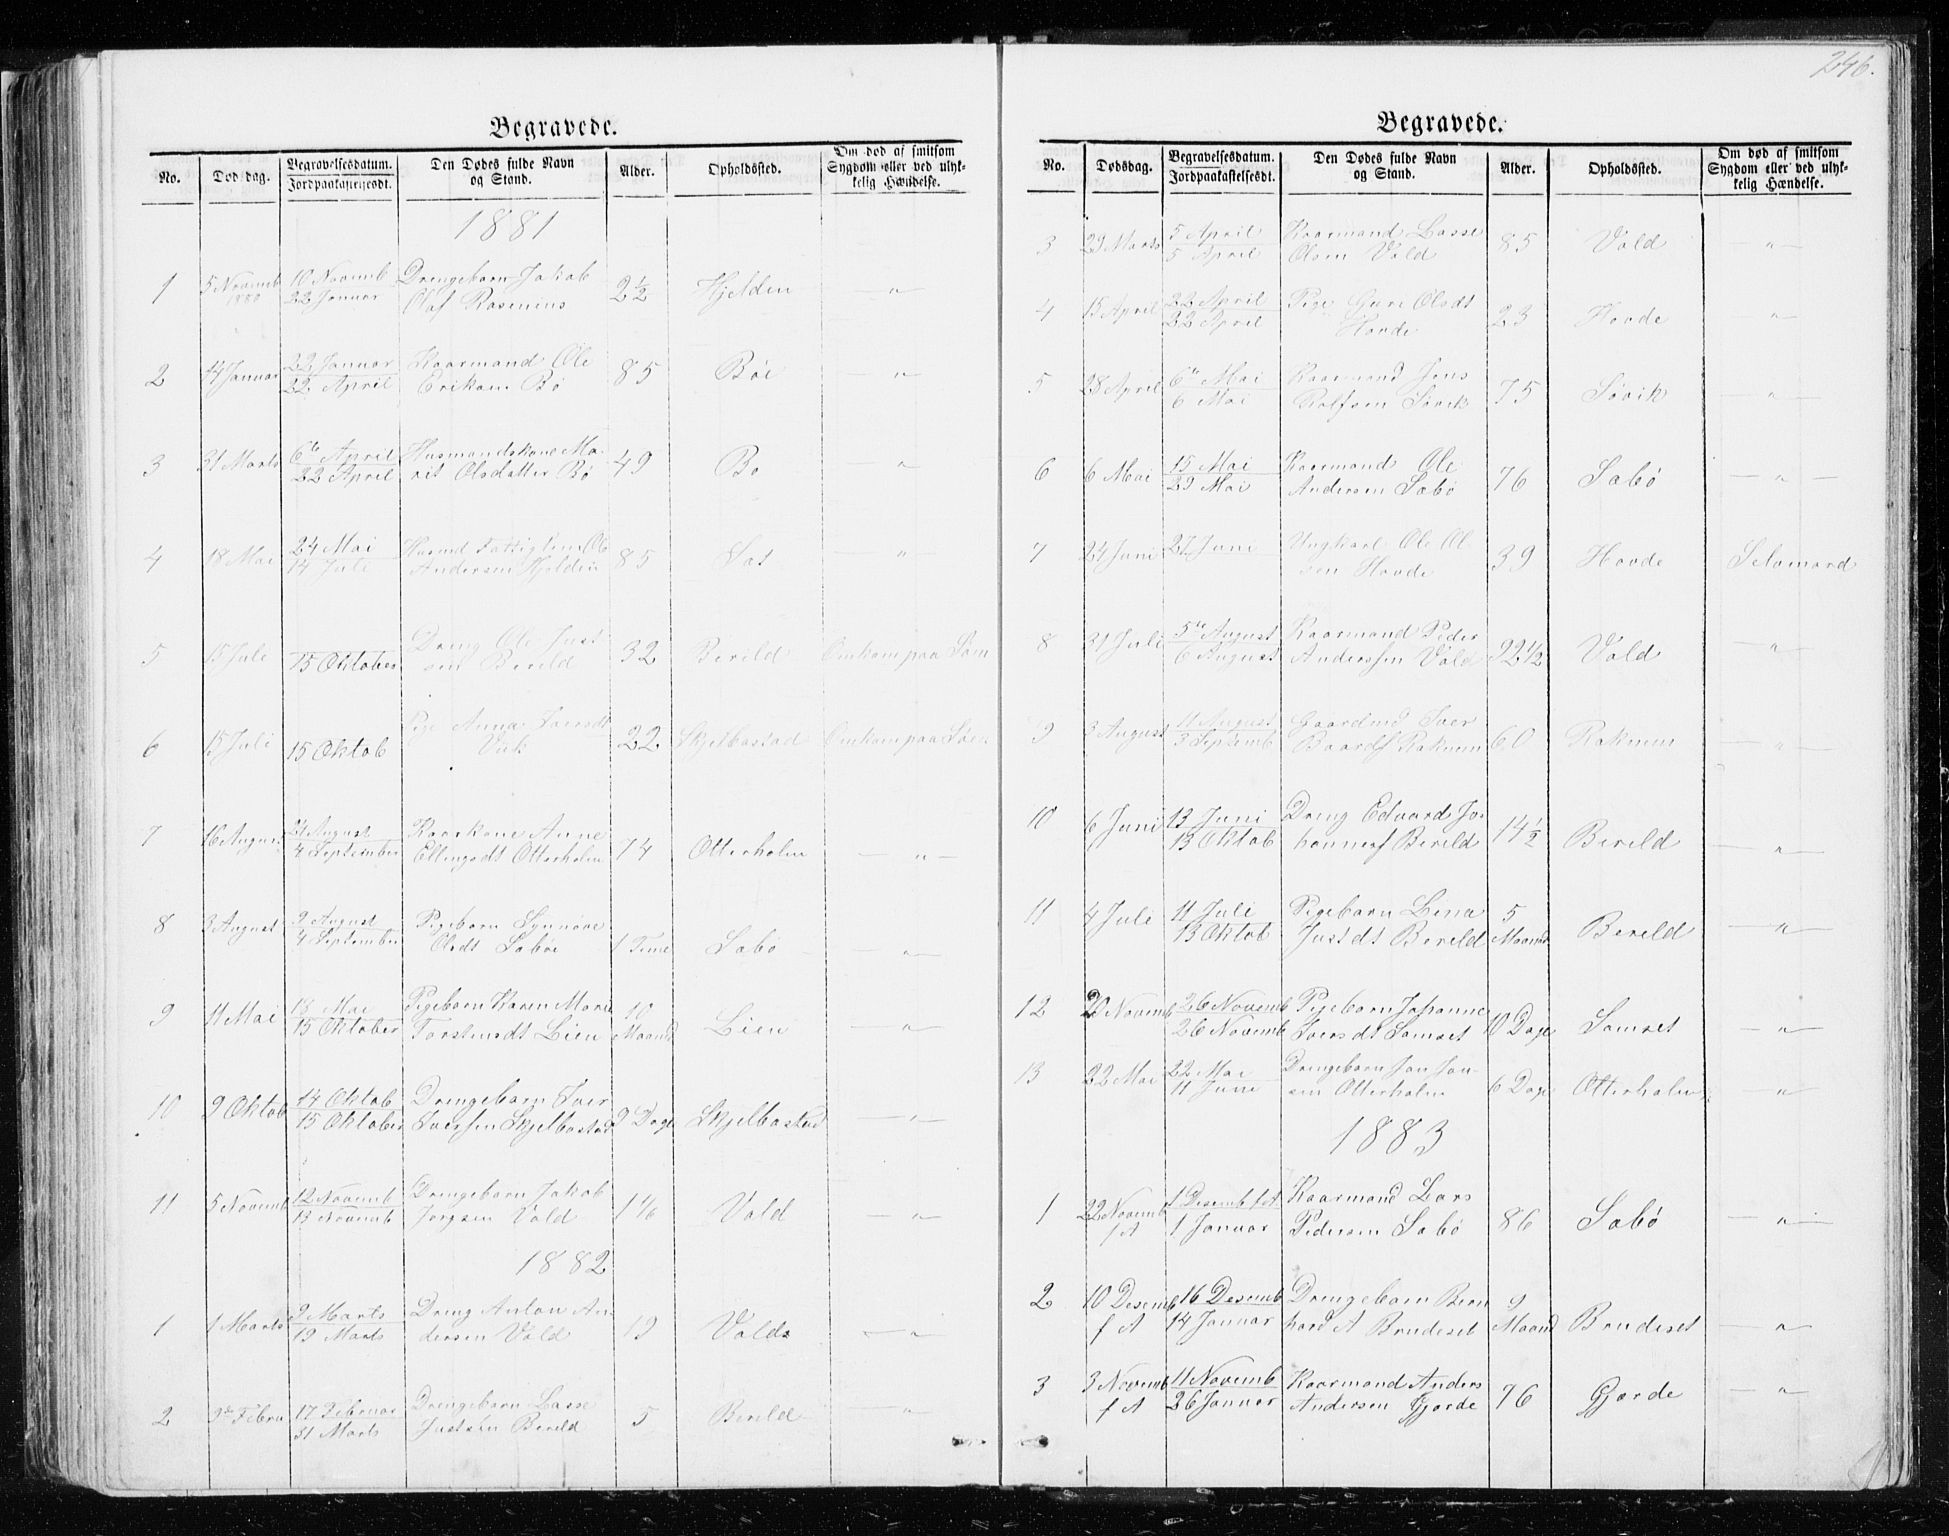 246.
Begravede.
No. Dødsdag. Begravelsesdatum. Jordpaakastelsesdt. Den Dødes fulde Navn og Stand. Alder. Opholdssted. Om død af smitsom Sygdom eller ved ulykkelig Hændelse.
1881
1 5 Novemb 10 Novemb Drengebarn Jakob 2½ Hjelden — „ —
1880 22 Januar Olaf Rosenius
2 14 Januar 22 Januar Kaarmand Ole 85 Böe — „ —
22 April Eriksen Bö
3 31 Marts 6te April Husmandskone Ma- 49 Bö — „ —
22 April rit Olsdatter Bö
4 18 Mai 24 Mai Husmd Fattiglem Ole 85 Sat — „ —
14 Juli Andersen Hjelden
5 15 Juli Dreng Ole Just- 32 Berild Omkom paa Søen
15 Oktober sen Berild
6 15 Juli Pige Anna Iversdt 22 Skjelbostad Omkom paa Søen
15 Oktob Viik
7 16 August 21 August Kaarkone Anne 74 Otterholm — „ —
4 September Ellingsdt Otterholm
8 3 August 9 August Pigebarn Synnöve 1 Time Sabö — „ —
4 September Olsdt Saböe
9 11 Mai 18 Mai Pigebarn Karen Marie 10 Lien — „ —
15 Oktober Torstensdt Lien Maaned
10 9 Oktob 14 Oktob Drengebarn Iver 2 Dage Skjelbostad — „ —
15 Oktober Iversen Skjelbostad
11 5 Novemb 12 Novemb Drengebarn Jakob 1 1/6 Vold — „ —
13 Novemb Jørgsen Vold
1882
1 1 Marts 9 Marts Dreng Anton An- 19 Volds — „ —
19 Marts dersen Vold
2 9de Febru 17 Februar Drengebarn Lasse 5 Berild — „ —
31 Marts Justsen Berild
Begravede.
No. Dødsdag. Begravelsesdatum. Jordpaakastelsesdt. Den Dødes fulde Navn og Stand. Alder. Opholdssted. Om død af smitsom Sygdom eller ved ulykkelig Hændelse.
3 29 Marts 5 April Kaarmand Lasse 85 Vold — „ —
5 April Olsen Vold
4 15 April 22 April Pige Guri Olsdt 23 Hovde — „ —
22 April Hovde
5 28 April 6te Mai Kaarmand Jens 75 Søvik — „ —
6 Mai Rolfsen Søvik
6 6 Mai 15 Mai Kaarmand Ole 76 Sabö — „ —
29 Mai Andersen Sabö
7 24 Juni 27 Juni Ungkarl Ole Ol- 39 Hovde Selvmord
sen Hovde
8 31 Juli 5te August Kaarmand Peder 92½ Vold — „ —
6 August Anderssen Vold
9 3 August 11 August Gaardmd Iver 60 Raknem — „ —
3 Septemb Baards Raknem
10 6 Juni 13 Juni Dreng Edvard Jo- 14½ Berild — „ —
13 Oktob hannes Berild
11 4 Juli 11 Juli Pigebarn Lina 5 Berild — „ —
13 Oktob Justsdt Berild Maaned
12 20 Novemb 26 Novemb Pigebarn Johanne 10 Dage Samset — „ —
26 Novemb Iversdt Samset
13 22 Mai 22 Mai Drengebarn Jon Jon- 6 Dage Otterholm — „ —
11 Juni sen Otterholm
1883
1 22 Novemb 1 Desemb f A Kaarmand Lars 86 Sabö — „ —
f A 1 Januar Pedersen Sabö
2 10 Desemb 16 Desemb Drengebarn Bern- 9 Brudeset — „ —
f A 14 Januar hard A Brudeset Maaned
3 3 Novemb 11 Novemb Kaarmand Anders 76 Gjørde — „ —
f A 26 Januar Andersen Gjørde